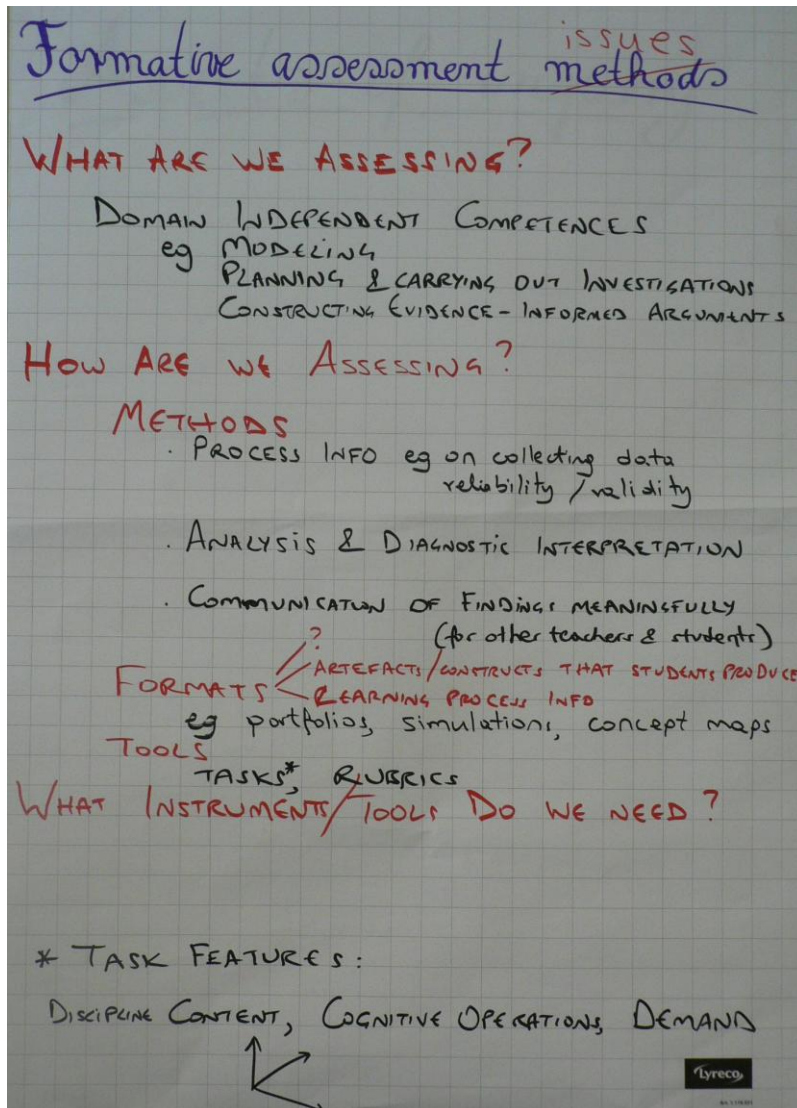 issues
Formative assessment methods
WHAT ARE WE ASSESSING?
DOMAIN INDEPENDENT COMPETENCES
eg MODELING
PLANNING & CARRYING OUT INVESTIGATIONS
CONSTRUCTING EVIDENCE-INFORMED ARGUMENTS
HOW ARE WE ASSESSING?
METHODS
. PROCESS INFO eg on collecting data
reliability / validity
. ANALYSIS & DIAGNOSTIC INTERPRETATION
. COMMUNICATION OF FINDINGS MEANINGFULLY
(for other teachers & students)
?
ARTEFACTS/CONSTRUCTS THAT STUDENTS PRODUCE
FORMATS
LEARNING PROCESS INFO
eg portfolios, simulations, concept maps
TOOLS
TASKS*, RUBRICS
WHAT INSTRUMENTS/TOOLS DO WE NEED?
* TASK FEATURES:
DISCIPLINE CONTENT, COGNITIVE OPERATIONS, DEMAND
Lyreco